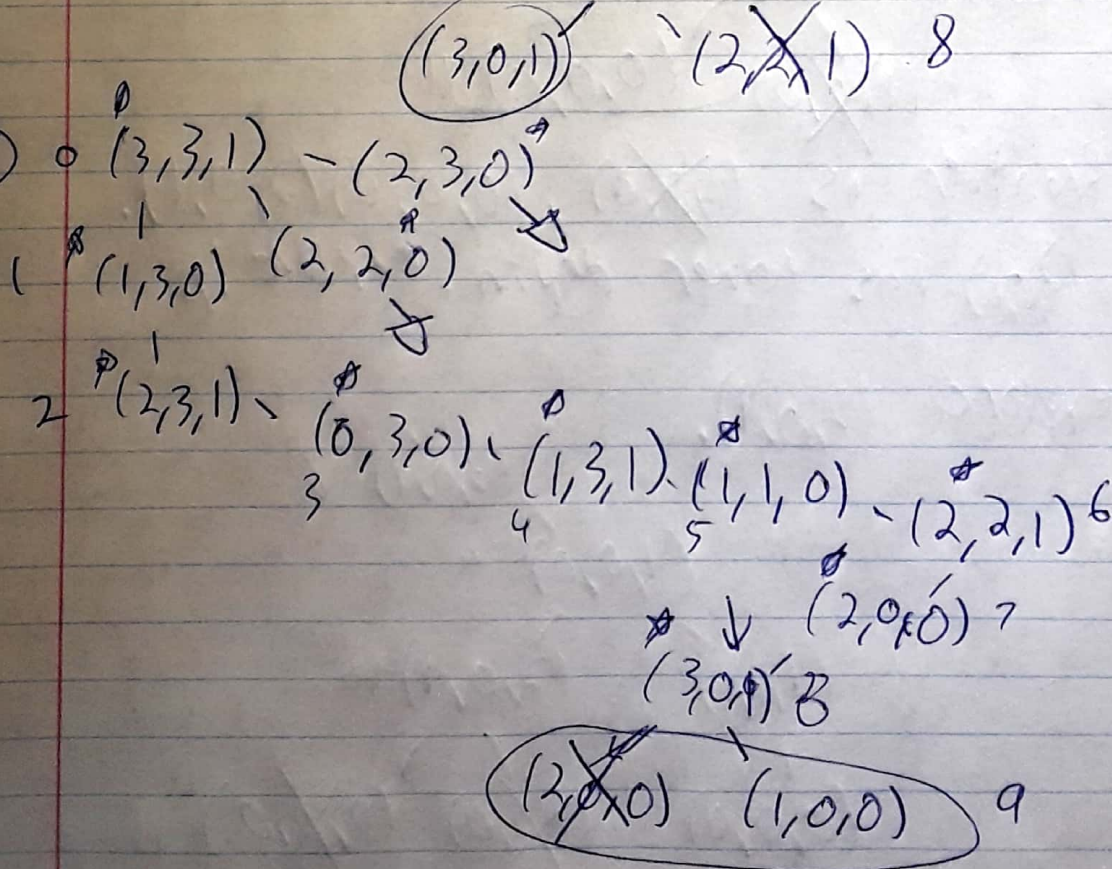 (3,0,1) (2,2,1) 8
) 0 (3,3,1) - (2,3,0)
1 (1,3,0) (2,2,0)
2 (2,3,1)
(0,3,0) (1,3,1) (1,1,0) (2,2,1) 6
3 4 5
(2,0,0) 7
(3,0,1) 8
(2,0,0) (1,0,0) 9